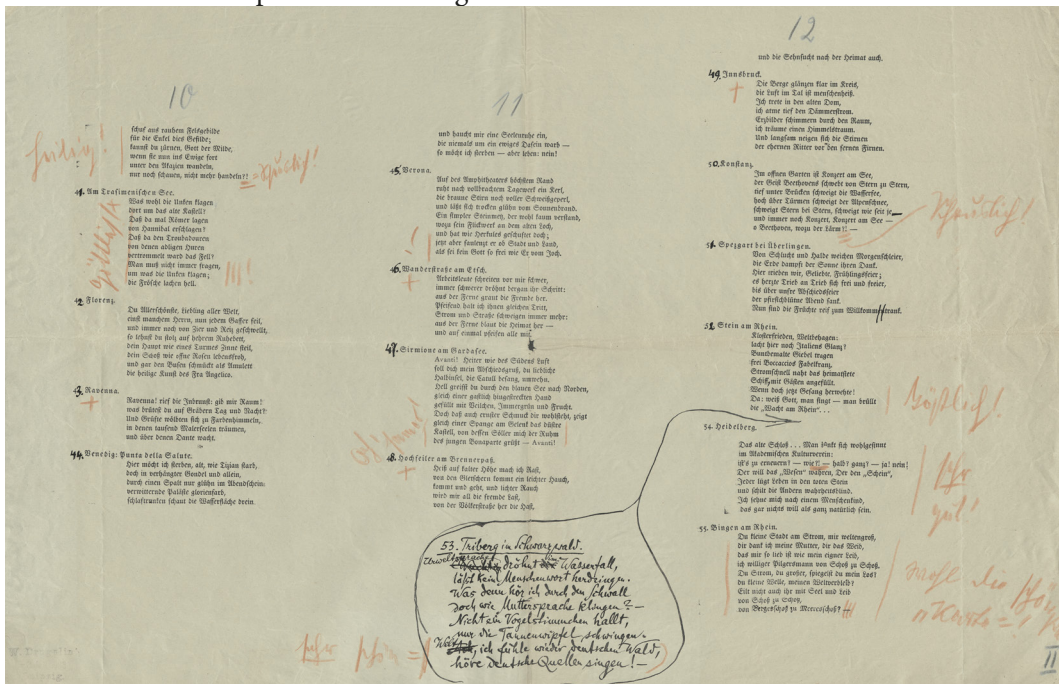 10
schuf aus rauhem Felsgebilde
für die Enkel dies Gefilde;
kannst du zürnen, Gott der Milde,
wenn sie nun ins Ewige fort
unter den Akazien wandeln,
nur noch schauen, nicht mehr handeln?!
heilig!
41. Am Trasimenischen See.
Was wohl die Unken klagen
dort um das alte Kastell?
Daß da mal Römer lagen
von Hannibal erschlagen?
Daß da den Troubadouren
von denen adligen Huren
vertrommelt ward das Fell?
Man muß nicht immer fragen,
um was die Unken klagen;
die Frösche lachen hell.
!!!
42. Florenz.
Du Allerschönste, Liebling aller Welt,
einst manchem Herrn, nun jedem Gaffer feil,
und immer noch von Zier und Reiz geschwellt,
so lehnst du stolz auf hohem Ruhebett,
dein Haupt wie eines Turmes Zinne steil,
dein Schoß wie offne Rosen lebensfroh,
und gar den Busen schmückt als Amulett
die heilige Kunst des Fra Angelico.
43. Ravenna.
Ravenna! rief die Inbrunst: gib mir Raum!
was brütest du auf Gräbern Tag und Nacht?
Und Grüfte wölbten sich zu Farbenhimmeln,
in denen tausend Malerseelen träumen,
und über denen Dante wacht.
44. Venedig: Punta della Salute.
Hier möcht ich sterben, alt, wie Tizian starb,
doch in verhängter Gondel und allein,
durch einen Spalt nur glühn im Abendschein
verwitternde Paläste glorienfarb,
schlaftrunken schaut die Wasserfläche drein.
11
und haucht mir eine Seelenruhe ein,
die niemals um ein ewiges Dasein warb —
so möcht ich sterben — aber leben: nein!
45. Verona.
Auf des Amphitheaters höchstem Rand
ruht nach vollbrachtem Tagewerk ein Kerl,
die braune Stirn noch voller Schweißgeperl,
und läßt sich trocken glühn vom Sonnenbrand.
Ein simpler Steinmetz, der wohl kaum verstand,
wozu sein Flickwerk an dem alten Loch,
und hat wie Herkules geschuftet doch;
jetzt aber faulenzt er ob Stadt und Land,
als sei kein Gott so frei wie Er vom Joch.
46. Wanderstraße am Etsch.
Arbeitsleute schreiten vor mir schwer,
immer schwerer dröhnt bergan ihr Schritt:
aus der Ferne graut die Fremde her.
Pfeifend halt ich ihnen gleichen Tritt,
Strom und Straße schweigen immer mehr:
aus der Ferne blaut die Heimat her —
und auf einmal pfeifen alle mit.
47. Sirmione am Gardasee.
Avanti! Heiter wie des Südens Luft
soll dich mein Abschiedsgruß, du liebliche
Halbinsel, die Catull besang, umwehn.
Hell greifst du durch den blauen See nach Norden,
gleich einer gastlich hingestreckten Hand
gefüllt mit Veilchen, Immergrün und Frucht.
Doch daß auch ernster Schmuck dir wohlsteht, zeigt
gleich einer Spange am Gelenk das düstre
Kastell, von dessen Söller mich der Ruhm
des jungen Bonaparte grüßt — Avanti!
48. Hochfeiler am Brennerpaß.
Heiß auf kalter Höhe mach ich Rast,
von den Gletschern kommt ein leichter Hauch,
kommt und geht, und lichter Rauch
wird mir all die fremde Last,
von der Völkerstraße her die Hast,
53. Triberg in Schwarzwald.
dröhnt Wasserfall,
läßt kein Menschenwort herdringen.
Was denn hör ich durch den Schwall
doch wie Muttersprache klingen? —
Nicht ein Vogelstimmchen hallt,
nur die Tannenwipfel schwingen.
ich fühle wieder deutschen Wald,
höre deutsche Quellen singen! —
sehr schön =!
12
und die Sehnsucht nach der Heimat auch.
49. Innsbruck.
Die Berge glänzen klar im Kreis,
die Luft im Tal ist menschenheiß.
Ich trete in den alten Dom,
ich atme tief den Dämmerstrom.
Erzbilder schimmern durch den Raum,
ich träume einen Himmelstraum.
Und langsam neigen sich die Stirnen
der ehernen Ritter vor den fernen Firnen.
50. Konstanz.
Im offnen Garten ist Konzert am See,
der Geist Beethovens schwebt von Stern zu Stern,
tief unter Brücken schweigt die Wasserfee,
hoch über Türmen schweigt der Alpenschnee,
schweigt Stern bei Stern, schweigt wie seit je
und immer noch Konzert, Konzert am See —
o Beethoven, wozu der Lärm?! —
Scheußlich!
51. Spezgart bei Überlingen.
Von Schlucht und Halde weichen Morgenschleier,
die Erde dampft der Sonne ihren Dank.
Hier rieben wir, Geliebte, Frühlingsfeier;
es herzte Trieb an Trieb sich frei und freier,
bis über unsre Abschiedsfeier
der pfirsichblühne Abend sank.
Nun sind die Früchte reif zum Willkommstrank.
52. Stein am Rhein.
Klosterfrieden, Weltbehagen:
lacht hier noch Italiens Glanz?
Buntbemalte Giebel tragen
frei Boccaccios Fabelkranz.
Stromschnell naht das heimatstete
Schiff, mit Gästen angefüllt.
Wenn doch jetzt Gesang herwehte!
Da: weiß Gott, man singt — man brüllt
die „Wacht am Rhein“ . . .
Köstlich!
54. Heidelberg.
Das alte Schloß . . . Man zankt sich wohlgesinnt
im Akademischen Kulturverein:
ist's zu erneuern? — wie?! — halb? ganz? — ja! nein!
Der will das „Wesen“ wahren, Der den „Schein“,
Jeder lügt Leben in den toten Stein
und schilt die Andern wahrheitsblind.
Ich sehne mich nach einem Menschenkind,
das gar nichts will als ganz natürlich sein.
sehr
gut!
55. Bingen am Rhein.
Du kleine Stadt am Strom, mir weltengroß,
dir dank ich meine Mutter, dir das Weib,
das mir so lieb ist wie mein eigner Leib,
ich williger Pilgersmann von Schoß zu Schoß.
Du Strom, du großer, spiegelst du mein Los?
du kleine Welle, meinen Weltverbleib?
Eilt nicht auch ihr mit Seel und Leib
von Schoß zu Schoß,
von Bergesschoß zu Meeresschoß? —
II